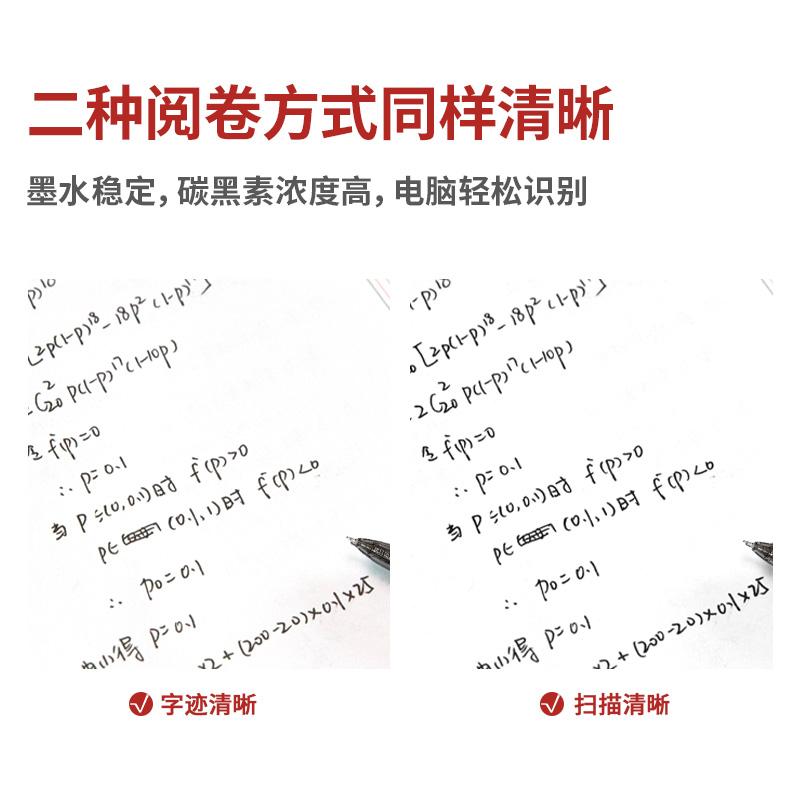 二种阅卷方式同样清晰
墨水稳定，碳黑素浓度高，电脑轻松识别
-p)¹⁸
[2p(1-p)¹⁸-18p²(1-p)¹⁷]
2C²₂₀ p(1-p)¹⁷(1-10p)
令 f'(p)=0
∴ p=0.1
当 p=(0,0.1)时 f'(p)>0
p∈ (0.1,1)时 f'(p)<0
∴ p₀=0.1
得 p=0.1
×2+(200-20)×0.1×25
(1-p)¹⁸
[2p(1-p)¹⁸-18p²(1-p)¹⁷]
.2C²₂₀ p(1-p)¹⁷(1-10p)
令 f'(p)=0
∴ p=0.1
当 p=(0,0.1)时 f'(p)>0
p∈ (0.1,1)时 f'(p)<0
∴ p₀=0.1
得 p=0.1
×2+(200-20)×0.1×25
字迹清晰
扫描清晰